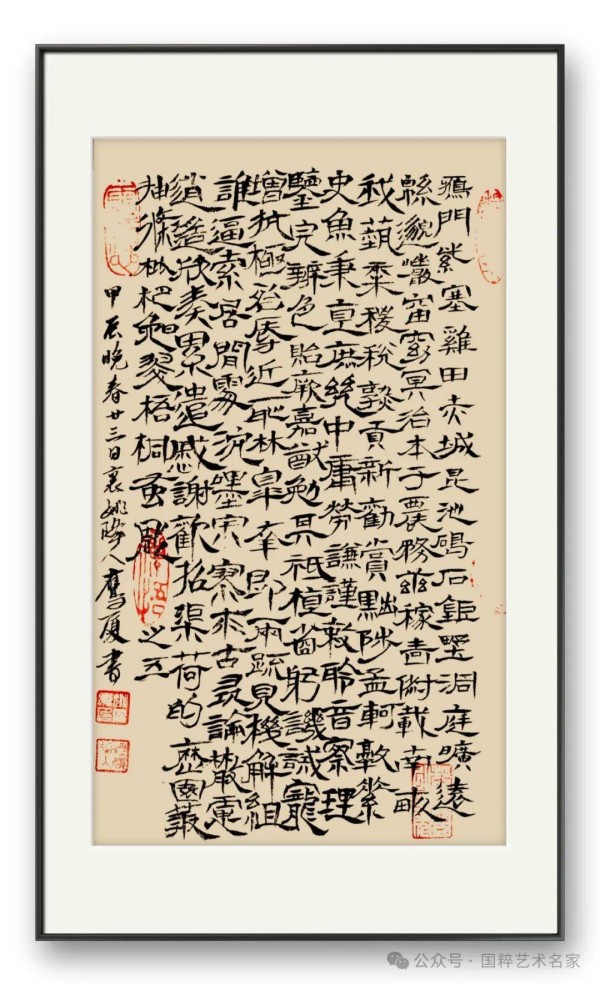 鴈門紫塞雞田赤城昆池碣石鉅壄洞庭曠遠
緜邈巖岫窈冥治本于農務茲稼穡俶載南畝
我蓺黍稷稅熟貢新勸賞黜陟孟軻敦素
史魚秉直庶幾中庸勞謙謹敕聆音察理
鑒皃辨色貽厥嘉猷勉其祗植省躬譏誡寵
增抗極殆辱近耻林皋幸即兩疏見機解組
誰逼索居閒處沉墨寂寥求古尋論散慮
逍遙欣奏累遣慼謝歡招渠荷的歷園莽
抽條枇杷晚翠梧桐蚤凋 之五
甲辰晚春廿三日襄姚人鷹廈書
公众号·国粹艺术名家